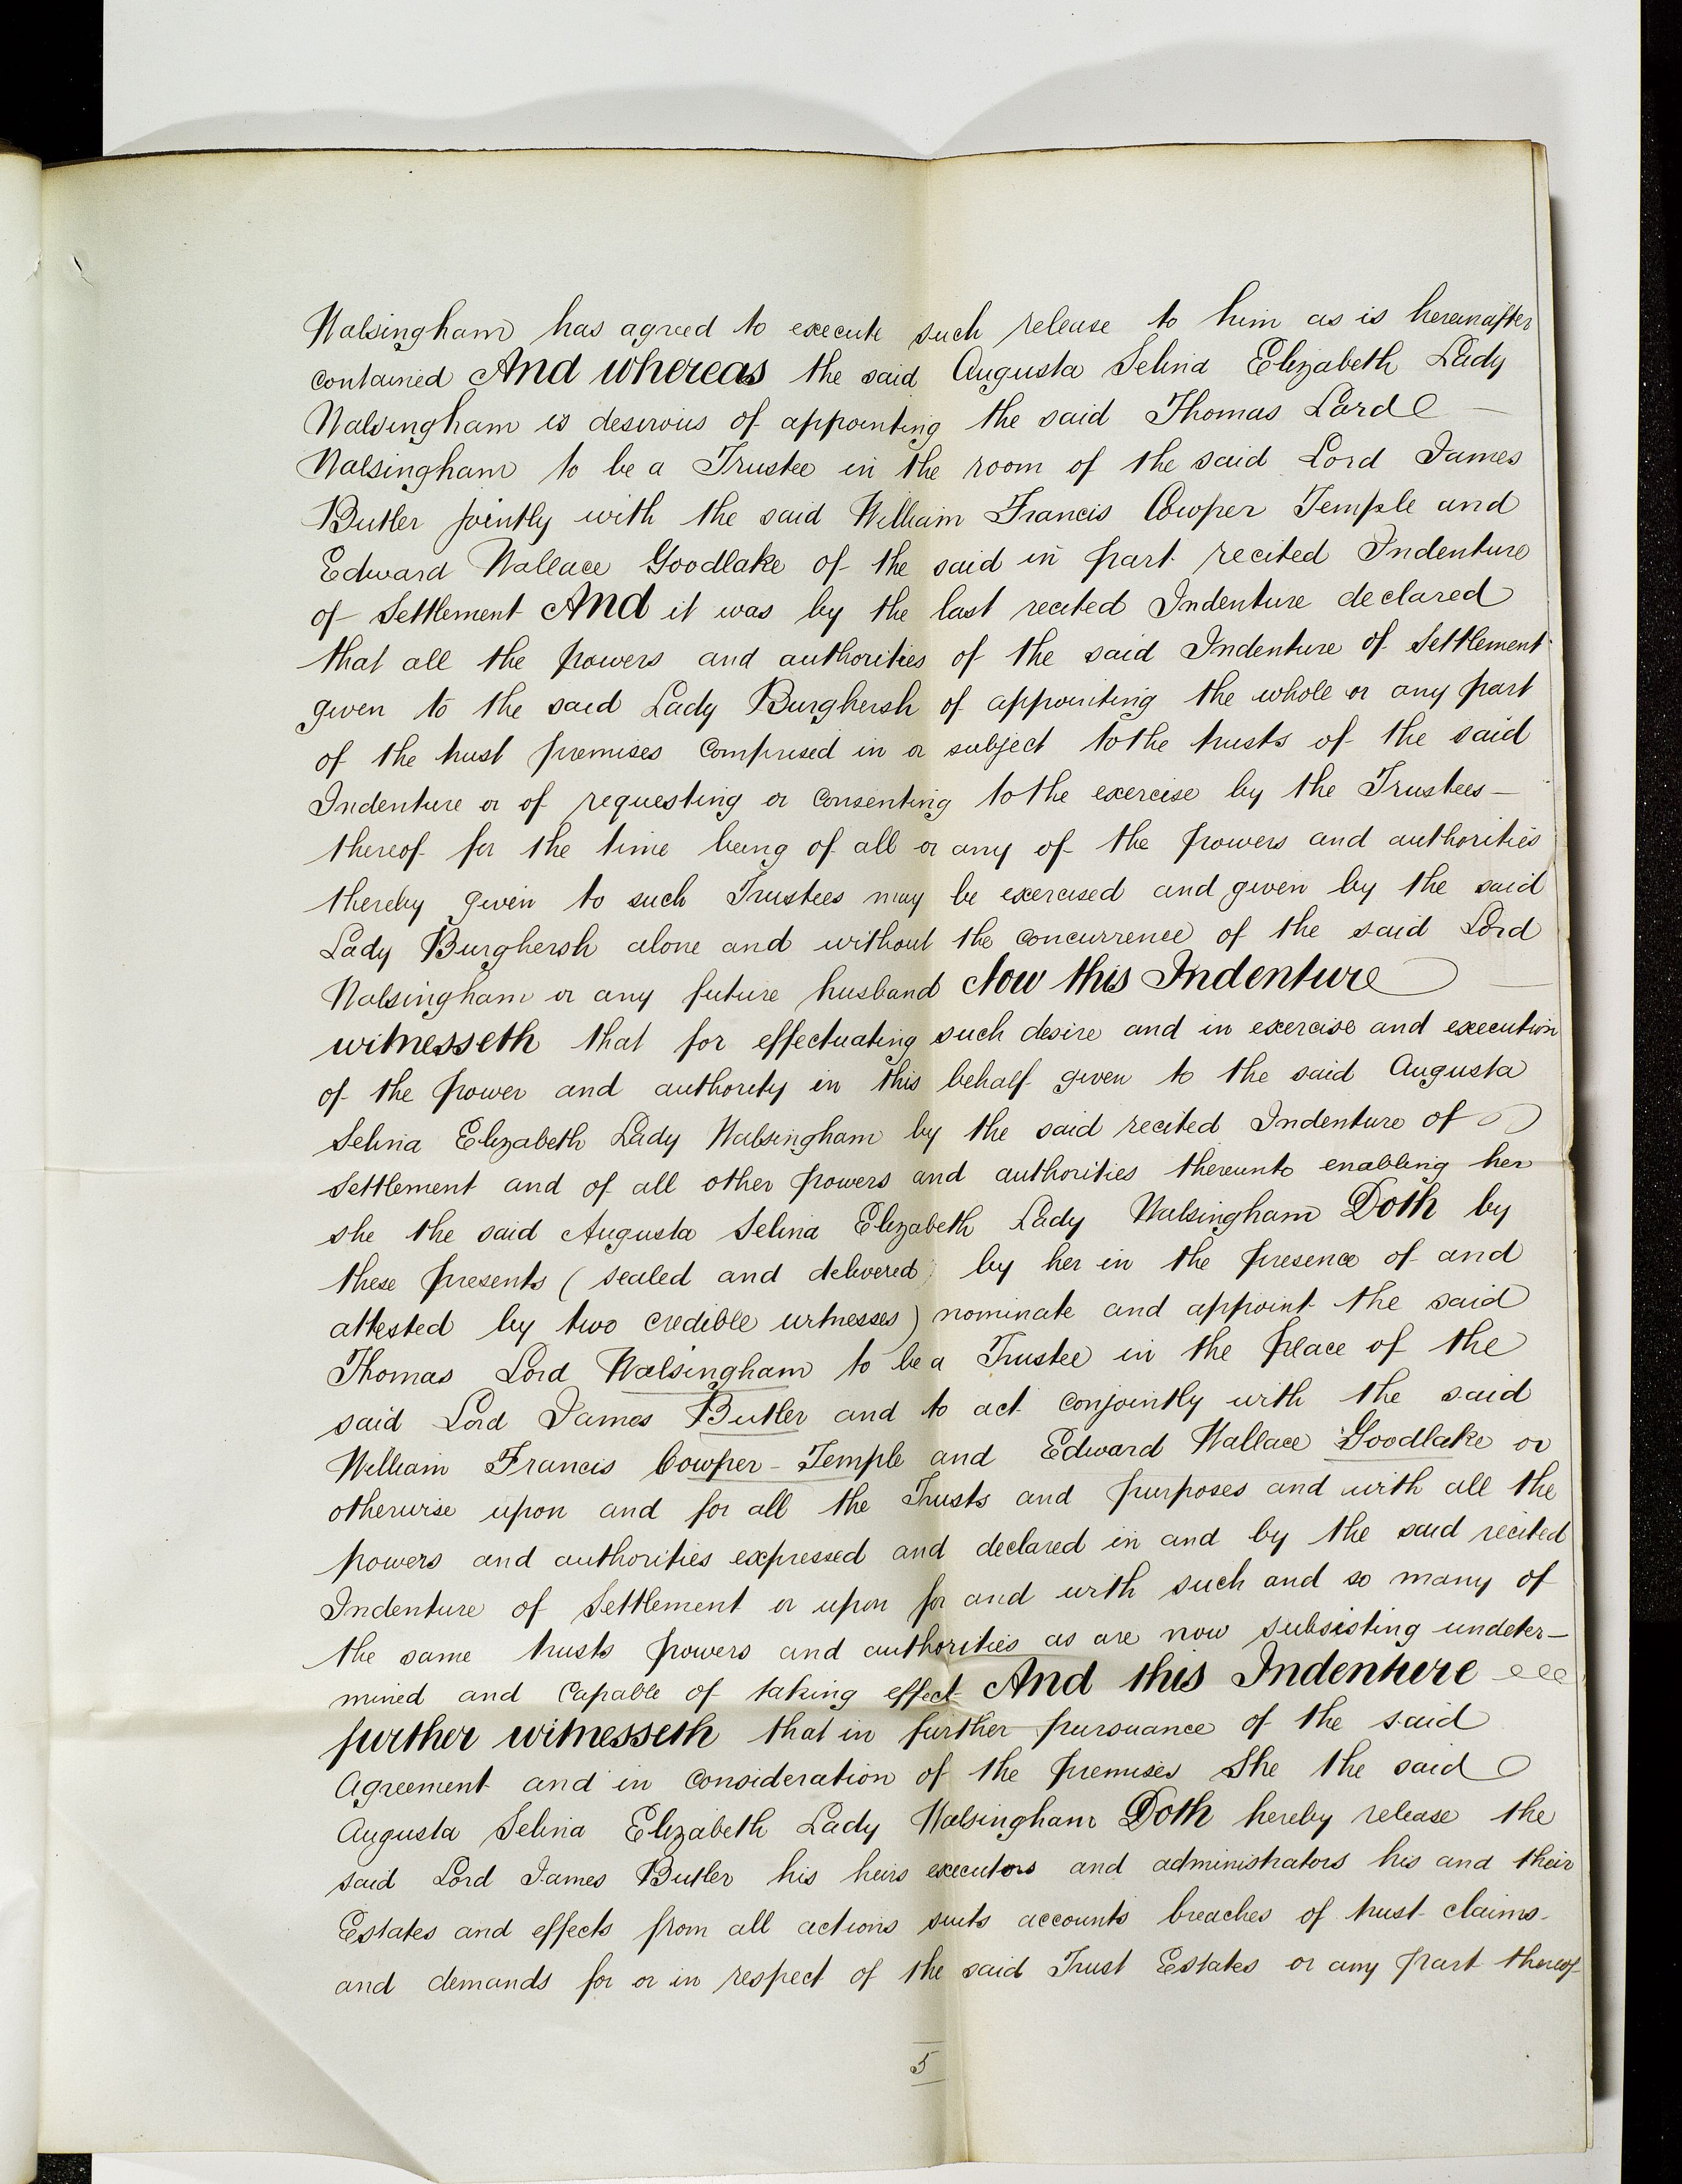 Walsingham has agreed to execute such release to him as is hereinafter
contained And whereas the said Augusta Selina Elizabeth Lady
Walsingham is desirous of appointing the said Thomas Lord
Walsingham to be a Trustee in the room of the said Lord James
Butler jointly with the said William Francis Cowper Temple and
Edward Wallace Goodlake of the said in part recited Indenture
of Settlement And it was by the last recited Indenture declared
that all the powers and authorities of the said Indenture of Settlement
given to the said Lady Burghersh of appointing the whole or any part
of the trust premises comprised in or subject to the trusts of the said
Indenture or of requesting or consenting to the exercise by the Trustees
thereof for the time being of all or any of the powers and authorities
thereby given to such Trustees may be exercised and given by the said
Lady Burghersh alone and without the concurrence of the said Lord
Walsingham or any future husband Now this Indenture
witnesseth that for effectuating such desire and in exercise and execution
of the power and authority in this behalf given to the said Augusta
Selina Elizabeth Lady Walsingham by the said recited Indenture of
Settlement and of all other powers and authorities thereunto enabling her
she the said Augusta Selina Elizabeth Lady Walsingham Doth by
these presents (sealed and delivered by her in the presence of and
attested by two credible witnesses) nominate and appoint the said
Thomas Lord Walsingham to be a Trustee in the place of the
said Lord James Butler and to act conjointly with the said
William Francis Cowper-Temple and Edward Wallace Goodlake or
otherwise upon and for all the Trusts and purposes and with all the
powers and authorities expressed and declared in and by the said recited
Indenture of Settlement or upon for and with such and so many of
the same trusts powers and authorities as are now subsisting undeter-
mined and capable of taking effect And this Indenture
further witnesseth that in further pursuance of the said
Agreement and in consideration of the premises She the said
Augusta Selina Elizabeth Lady Walsingham Doth hereby release the
said Lord James Butler his heirs executors and administrators his and their
Estates and effects from all actions suits accounts breaches of trust claims
and demands for or in respect of the said Trust Estates or any part thereof
5